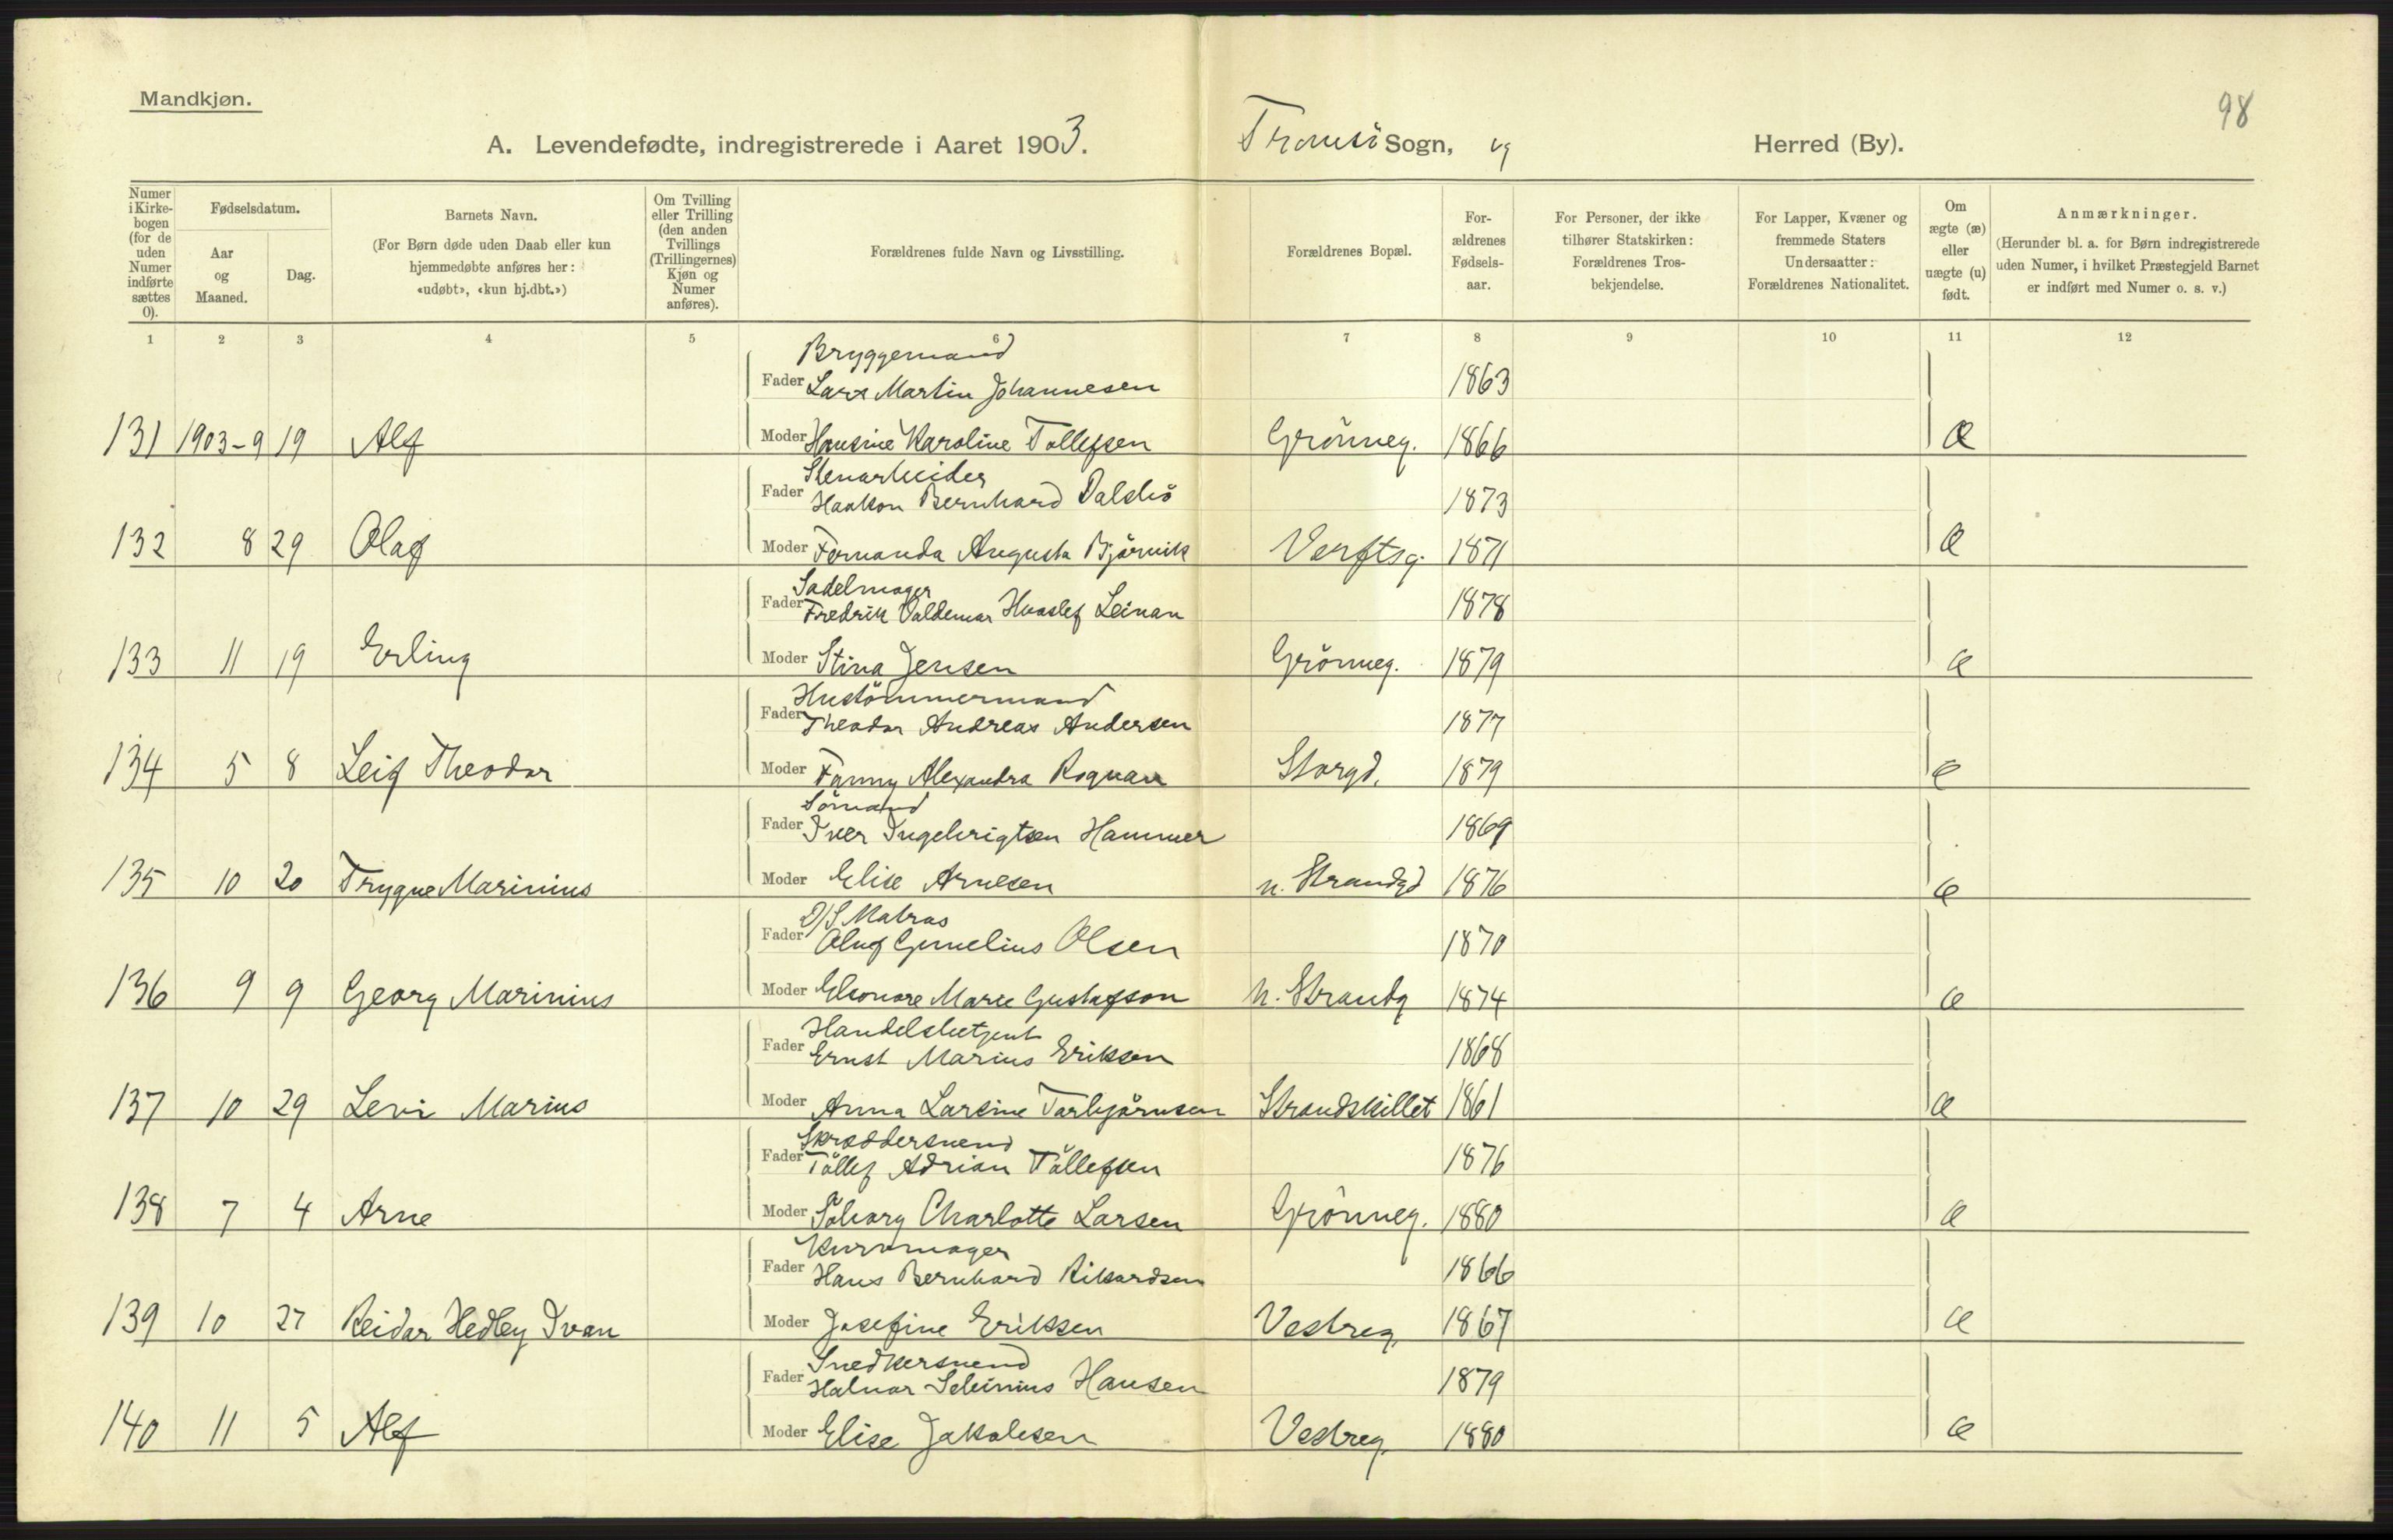 Mandkjøn.
98
A. Levendefødte, indregistrerede i Aaret 1903. Tromsö Sogn, og Herred (By).
Numer i Kirkebogen (for de uden Numer indførte sættes 0).
Fødselsdatum.
Aar og Maaned.
Dag.
Barnets Navn.
(For Børn døde uden Daab eller kun hjemmedøbte anføres her: «udøbt», «kun hj.dbt.»)
Om Tvilling eller Trilling (den anden Tvillings (Trillingernes) Kjøn og Numer anføres).
Forældrenes fulde Navn og Livsstilling.
Forældrenes Bopæl.
Forældrenes Fødselsaar.
For Personer, der ikke tilhører Statskirken: Forældrenes Trosbekjendelse.
For Lapper, Kvæner og fremmede Staters Undersaatter: Forældrenes Nationalitet.
Om ægte (æ) eller uægte (u) født.
Anmærkninger.
(Herunder bl. a. for Børn indregistrerede uden Numer, i hvilket Præstegjeld Barnet er indført med Numer o. s. v.)
1 2 3 4 5 6 7 8 9 10 11 12
Bryggemand
Fader Lars Martin Johannesen 1863
131 1903-9 19 Alf Moder Hansine Karoline Tollefsen Grönneg. 1866 Æ
Stenarbeider
Fader Haakon Bernhard Dalsbö 1873
132 8 29 Olaf Moder Fernanda Augusta Bjørnvik Verftsg. 1871 Æ
Sadelmager
Fader Fredrik Valdemar Hvaslef Leinan 1878
133 11 19 Erling Moder Stina Jensen Grönneg. 1879 æ
Hustömmermand
Fader Theodor Andreas Andersen 1877
134 5 8 Leif Theodor Moder Fanny Alexandra Rognan Storgd. 1879 æ
Sömand
Fader Iver Ingebrigtsen Hammer 1869
135 10 20 Trygve Marinius Moder Elise Arnesen n. Strandgd 1876 æ
D/S Matros
Fader Oluf Cornelius Olsen 1870
136 9 9 Georg Marinius Moder Eleonore Marie Gustafson N. Strandg 1874 æ
Handelsbetjent
Fader Ernst Marius Eriksen 1868
137 10 29 Levi Marius Moder Anna Larsine Torbjörnsen Strandskillet 1861 æ
Skræddersvend
Fader Töllef Adrian Töllefsen 1876
138 7 4 Arne Moder Solborg Charlotte Larsen Grönneg. 1880 æ
Kurvmager
Fader Hans Bernhard Rikardsen 1866
139 10 27 Reidar Hedley Ivan Moder Josefine Eriksen Vestreg. 1867 æ
Snedkersvend
Fader Halvar Hansen 1879
140 11 5 Alf Moder Elise Jakobsen Vestreg. 1880 æ